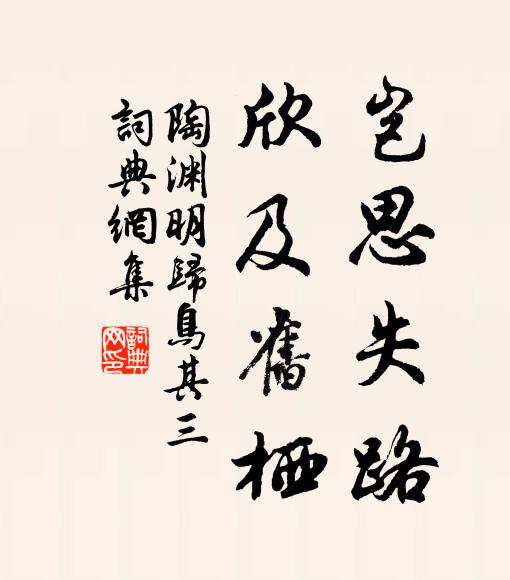 岂思失路
欣及舊栖
陶渊明歸鳥其三
詞典網集
詞典網印